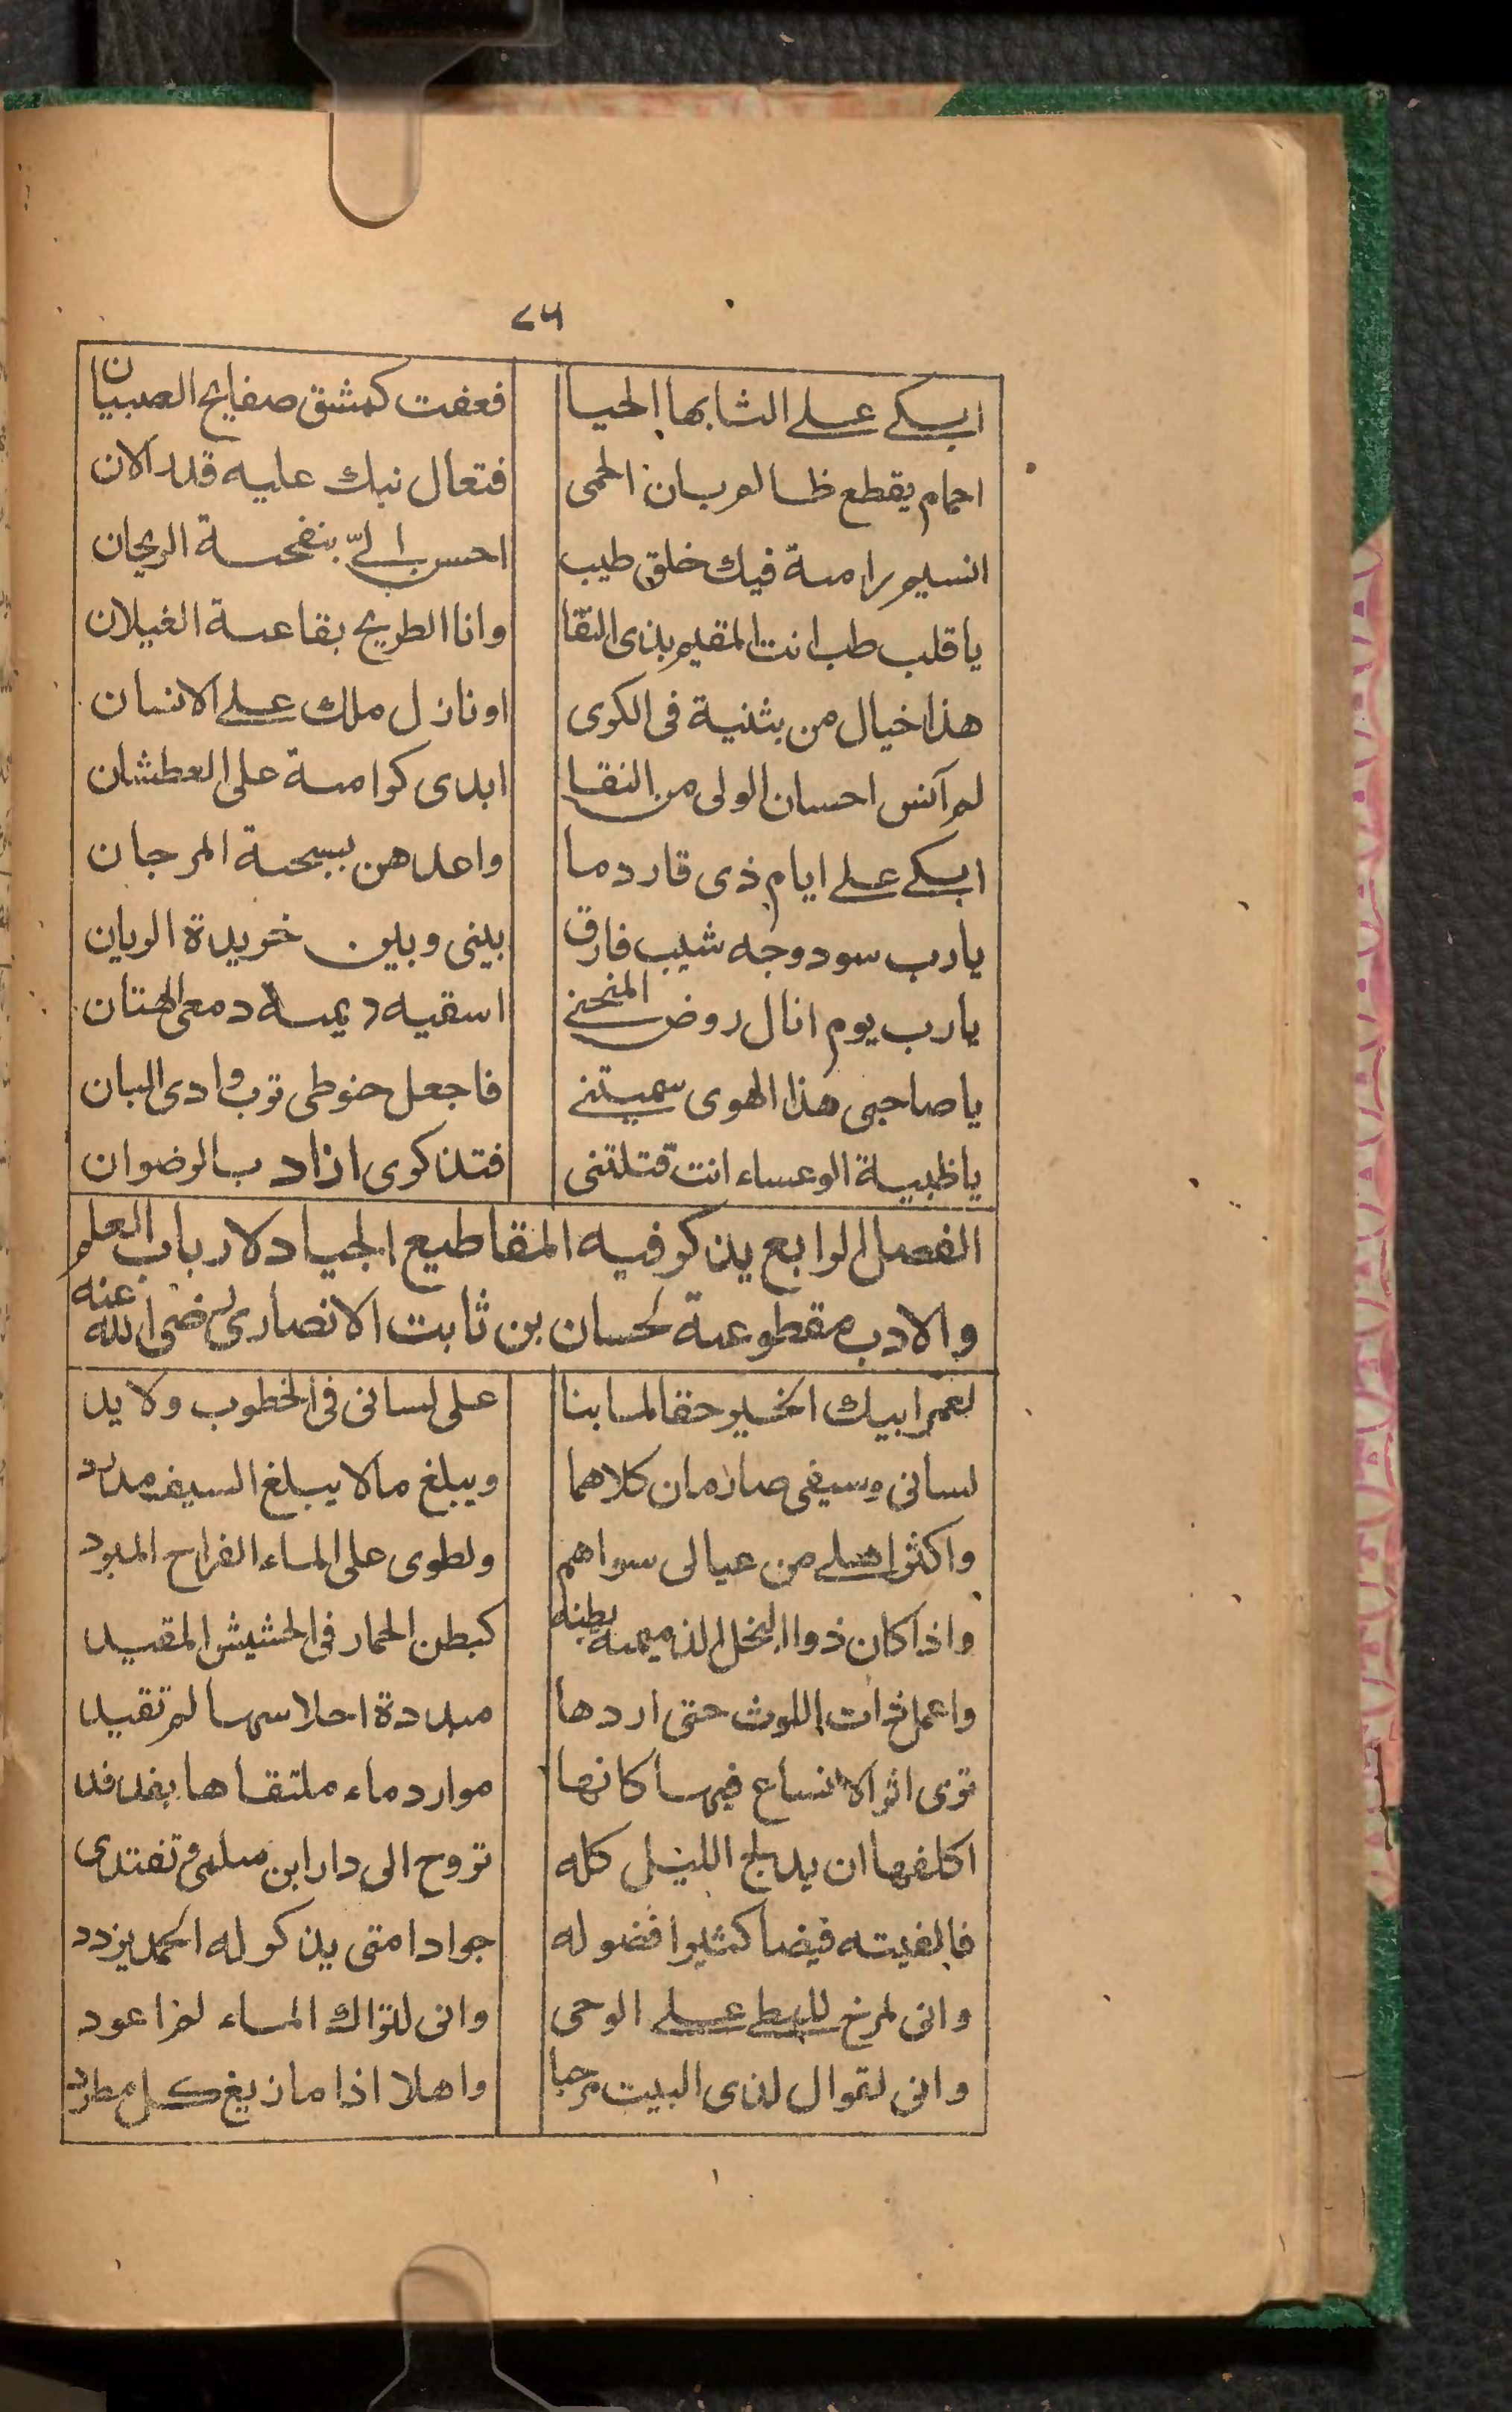 ٢٥
ابكي على الشابها الحيا فعفت كمشق صفايح الصبيان
احمام يقطع ظالعربان الحمى فتعال نبك عليه قدر الان
انسيم رامة فيك خلق طيب احسن اليّ بنفحة الريحان
يا قلب طب انت المقيم بذى النقا وانا الطريح بقاعة الغيلان
هذا خيال من بثنية فى الكرى او نازل ملك على الانسان
لم آنس احسان الولى من النقا ابدى كرامة على العطشان
ابكي على ايام ذى قار دما واعدهن بسبحة المرجان
يارب سود وجه شيب فارق بينى وبين خريدة الريان
يارب يوم انال روض المنحنى اسقيه ديمة دمعى الهتان
يا صاحبى هذا الهوى سميتنى فاجعل حنوطى ترب وادى البان
يا ظبية الوعساء انت قتلتنى فتذكرى اذا رب الرضوان
الفصل الرابع يذكر فيه المقاطيع الجياد لارباب العلم
والادب مقطوعة لحسان بن ثابت الانصارى رضى الله عنه
لعمر ابيك الخير حقا لما بنا على لسانى فى الخطوب ولا يد
لسانى وسيفى صارمان كلاهما ويبلغ مالا يبلغ السيف مذود
واكثر اهلى من عيالى سواهم ولطوى على الماء القراح المبرد
واذا كان ذو البخل الذميمة بطنه كبطن الحمار فى الحشيش المقيد
واعمل ذات اللوث حتى اردها مبددة احلاسها لم تقيد
ترى اثر الانساع فيها كانها موارد ماء ملتقاها بفدفد
اكلفها ان يدلج الليل كله تروح الى دار ابن سلمى وتغتدى
فالفيته فيضا كثيرا فضوله جوادا متى يذكر له الحمد يزدد
وانى لمزخ للمطى على الوحى وانى لتراك الماء لم اعود
وانى لقوال لذى البيت مرحبا واهلا اذا ما زيغ كل مطرد